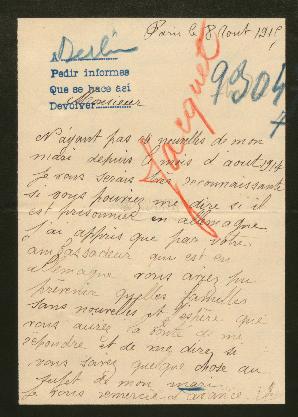 Paris le 8 Aout 191
A Berlin
Pedir informes
Que se hace así
Devolver
Monsieur
Jacquet
9304
N'ayant pas de nouvelles de mon
mari depuis le mois d'aout 1914
Je vous serais très reconnaissante
si vous pouviez me dire si il
est prisonnier en allemagne
J'ai appris que par votre
ambassadeur qui est en
allemagne vous aviez pu
prévenir quelles familles
sans nouvelles et espère que
vous aurez la bonté de me
repondre et de me dire si
vous savez quelque chose au
sujet de mon mari
Je vous remercie d'avance